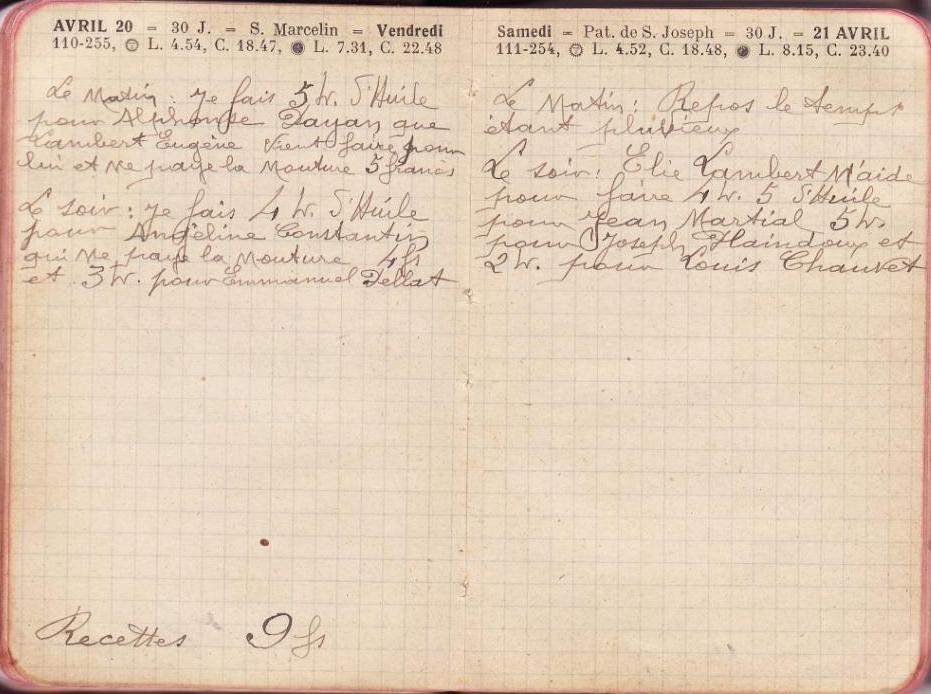 AVRIL 20 = 30 J. = S. Marcelin = Vendredi
110-255, L. 4.54, C. 18.47, L. 7.31, C. 22.48
Le Matin : je fais 5 d'Huile
pour Alphonse Dayan que
Lambert Eugène vient faire pour
lui et Me paye la Mouture 5 francs
Le soir : je fais 4 d'Huile
pour Angéline Constantin
qui Me paye la Mouture 4 fs
et 3 pour Emmanuel Dellat
Recettes 9 fs
Samedi = Pat. de S. Joseph = 30 J. = 21 AVRIL
111-254, L. 4.52, C. 18.48, L. 8.15, C. 23.40
Le Matin : Repos le temps
étant pluvieux
Le soir : Elie Lambert M'aide
pour faire 4 5 d'Huile
pour Jean Martial 5
pour Joseph et
2 pour Louis Chauvet